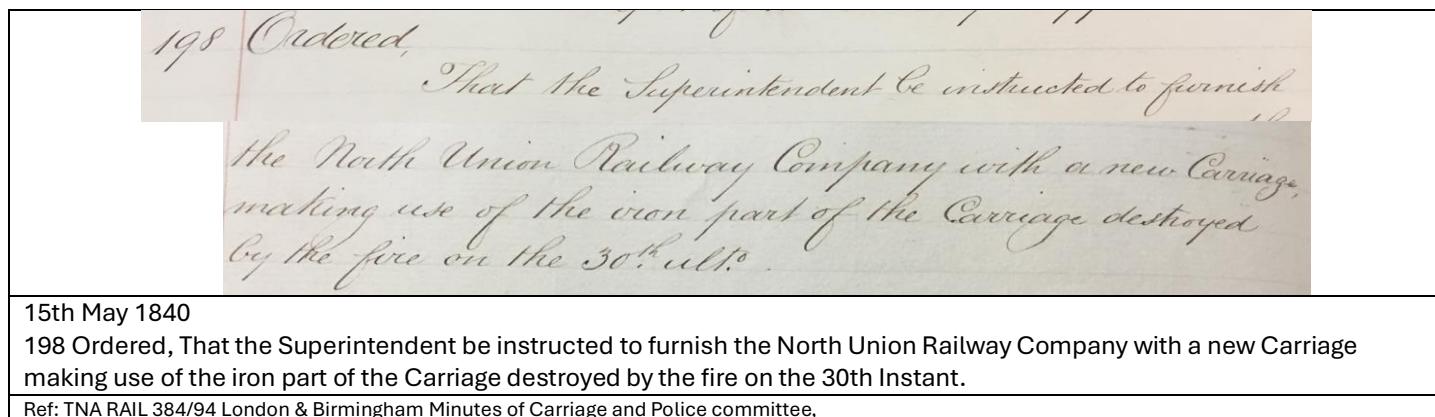 198 Ordered,
That the Superintendent be instructed to furnish
the North Union Railway Company with a new Carriage,
making use of the iron part of the Carriage destroyed
by the fire on the 30th ulto.
15th May 1840
198 Ordered, That the Superintendent be instructed to furnish the North Union Railway Company with a new Carriage
making use of the iron part of the Carriage destroyed by the fire on the 30th Instant.
Ref: TNA RAIL 384/94 London & Birmingham Minutes of Carriage and Police committee,